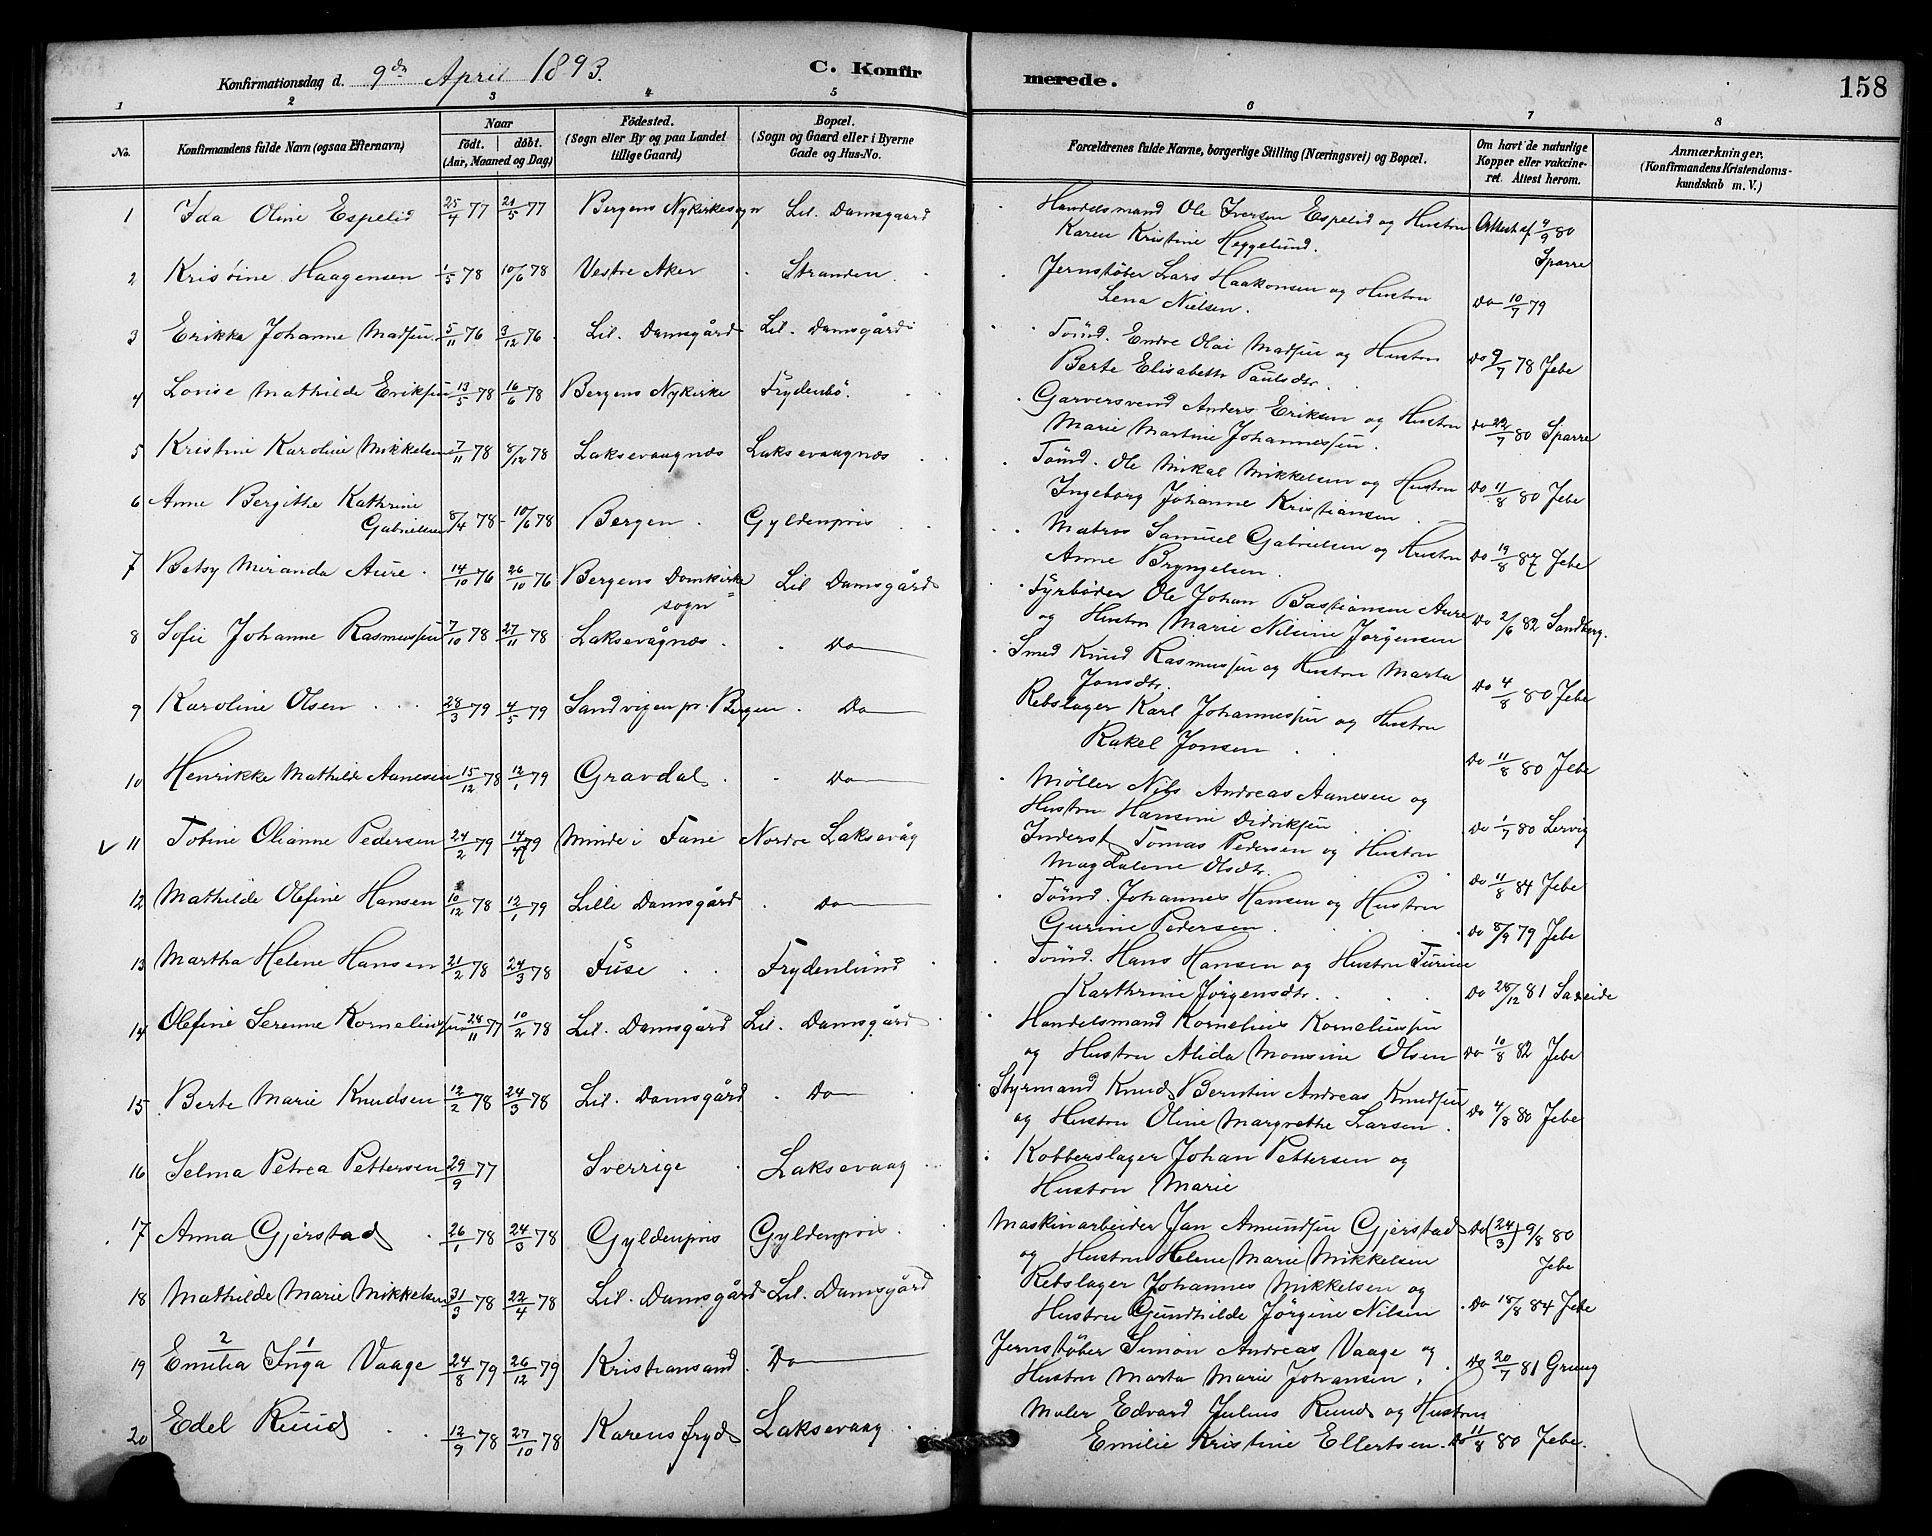 Konfirmationsdag d. 9de April 1893. C. Konfirmerede. 158
1 2 3 4 5 6 7 8
No. Konfirmandens fulde Navn (ogsaa Efternavn) Naar født. døbt. (Aar, Maaned og Dag) Fødested. (Sogn eller By og paa Landet tillige Gaard) Bopæl. (Sogn og Gaard eller i Byerne Gade og Hus-No. Forældrenes fulde Navne, borgerlige Stilling (Næringsvei) og Bopæl. Om havt de naturlige Kopper eller vakcineret. Attest herom. Anmærkninger. (Konfirmandens Kristendomskundskab m. V.)
1 Ida Oline Espelid 25/4 77 21/5 77 Bergens Nykirkesogn Lil. Damsgaard Handelsmand Ole Iversen Espelid og Hustru Attest af 4/9 80
Karen Kristine Heggelund. Sparre
2 Krisøine Haagensen 1/5 78 10/6 78 Vestre Aker Stranden Jernstøber Lars Haakonsen og Hustru
Lena Nielsen. Do 10/7 79
3 Erikka Johanne Madsen 5/11 76 3/12 76 Lil. Damsgård Lil. Damsgård Tømd. Endre Olai Madsen og Hustru
Berte Elisabeth Paulsdtr. Do 9/7 78 Jebe
4 Lovise Mathilde Eriksen 13/5 78 16/6 78 Bergens Nykirke Frydenbö. Garversvend Anders Eriksen og Hustru
Marie Martine Johannessen. Do 22/7 80 Sparre
5 Kristine Karoline Mikkelsen 7/11 78 8/12 78 Laksevaagnæs Laksevaagnæs Tømd. Ole Mikal Mikkelsen og Hustru
Ingeborg Johanne Kristiansen Do 11/8 80 Jebe
6 Anne Bergithe Kathrine
Gabrielsen 8/4 78 10/6 78 Bergen. Gyldenpris Matros Samuel Gabrielsen og Hustru
Anne Bryngelsen. Do 19/8 87 Jebe
7 Betsy Miranda Aure. 14/10 76 26/10 76 Bergens Domkirke Lil Damsgård Fyrbøder Ole Johan Bastiansen Aure
sogn og Hustru Marie Nilsine Jørgensen Do 2/6 82 Sandberg.
8 Sofie Johanne Rasmussen 7/10 78 27/11 78 Laksevågnæs. Do Smed Knud Rasmussen og Hustru Marta
Jonsdtr. Do 4/8 80 Jebe
9 Karoline Olsen 28/3 79 4/5 79 Sandvigen pr. Bergen. Do Rebslager Karl Johannessen og Hustru
Rakel Jonsen Do 11/8 80 Jebe
10 Henrikke Mathilde Aanesen 15/12 78 12/1 79 Gravdal Do Møller Nils Andreas Aanesen og
Hustru Hansine Didriksen Do 1/7 80 Lervig
11 Tobine Olianne Pedersen 24/2 79 14/4 79 Minde i Fane Nordre Laksevåg Inderst Tomas Pedersen og Hustru
Magdalene Olsdtr. Do 11/8 84 Jebe
12 Mathilde Olefine Hansen 10/12 78 12/1 79 Lille Damsgård Do Tømd. Johannes Hansen og Hustru
Gurine Pedersen. Do 8/9 79 Jebe
13 Martha Helene Hansen 21/2 78 24/3 78 Fuse Frydenlund Tømd. Hans Hansen og Hustru Turine
Karthrine Jørgensdtr. Do 28/12 81 Saxeide
14 Olefine Serenne Korneliussen 28/11 77 10/2 78 Lil. Damsgård Lil. Damsgård Handelsmand Kornelius Korneliussen
og Hustru Alida Monsine Olsen Do 10/8 82 Jebe
15 Berte Marie Knudsen 12/2 78 24/3 78 Lil. Damsgård Do Styrmand Knud Berntin Andreas Knudsen
og Hustru Oline Margrethe Larsen. Do 4/8 80 Jebe
16 Selma Petrea Pettersen 29/9 77 Sverrige Laksevaag Kobberslager Johan Pettersen og
Hustru Marie
17 Anna Gjerstad 26/1 78 24/3 78 Gyldenpris Gyldenpris. Maskinarbeider Jan Amundsen Gjerstad Do (24/3) 9/8 80
og Hustru Helene Marie Mikkelsen Jebe
18 Mathilde Marie Mikkelsen 31/3 78 22/4 78 Lil. Damsgård Lil. Damsgård Rebslager Johannes Mikkelsen og
Hustru Gundhilde Jørgine Nilsen Do 18/8 84 Jebe
2 1
19 Emilia Inga Vaage 24/8 79 26/12 79 Kristiansand. Do Jernstøber Simon Andreas Vaage og
Hustru Marta Marie Johansen. Do 20/7 81 Grung
20 Edel Ruud 12/9 78 27/10 78 Karensfryd Laksevaag Maler Edvard Julius Ruud og Hustru
Emilie Kristine Ellertsen. Do 11/8 80 Jebe.